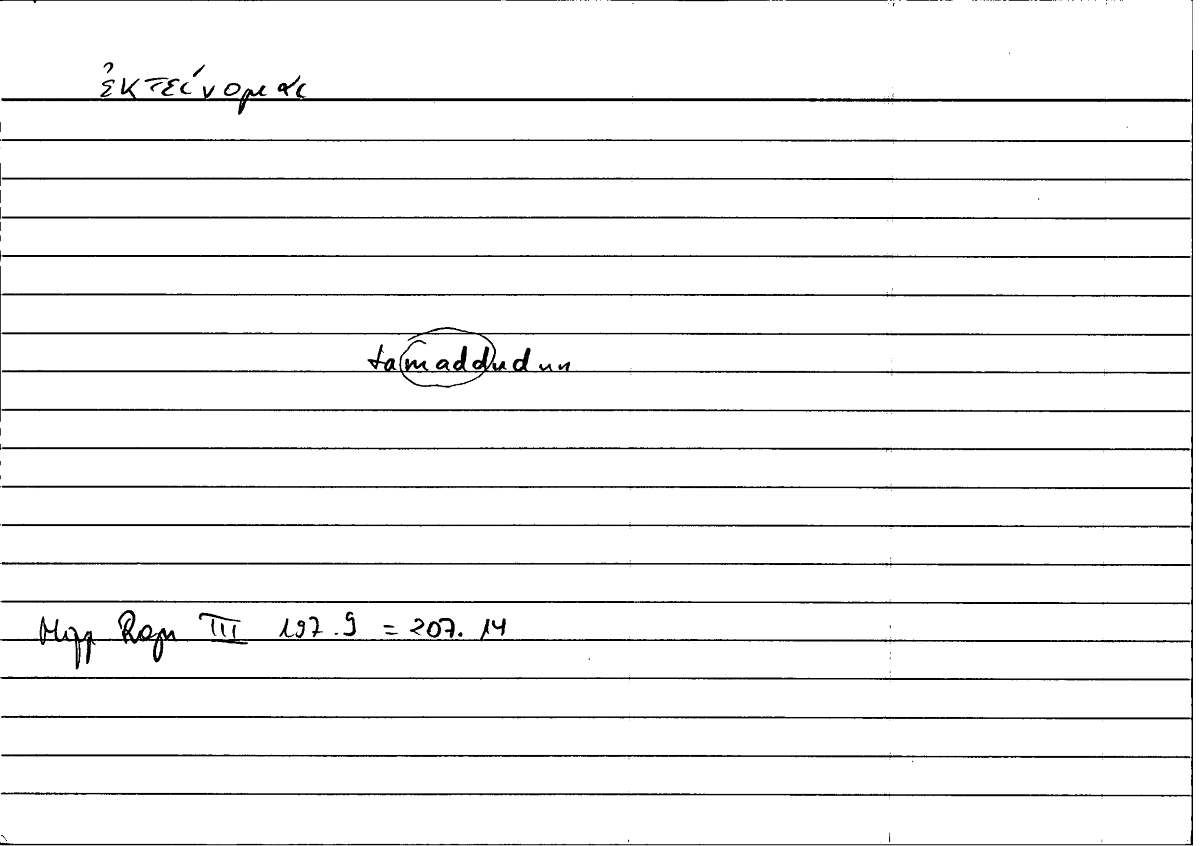 ἐκτείνομαι
tamaddudun
Hipp Regn III 197.9 = 207.14